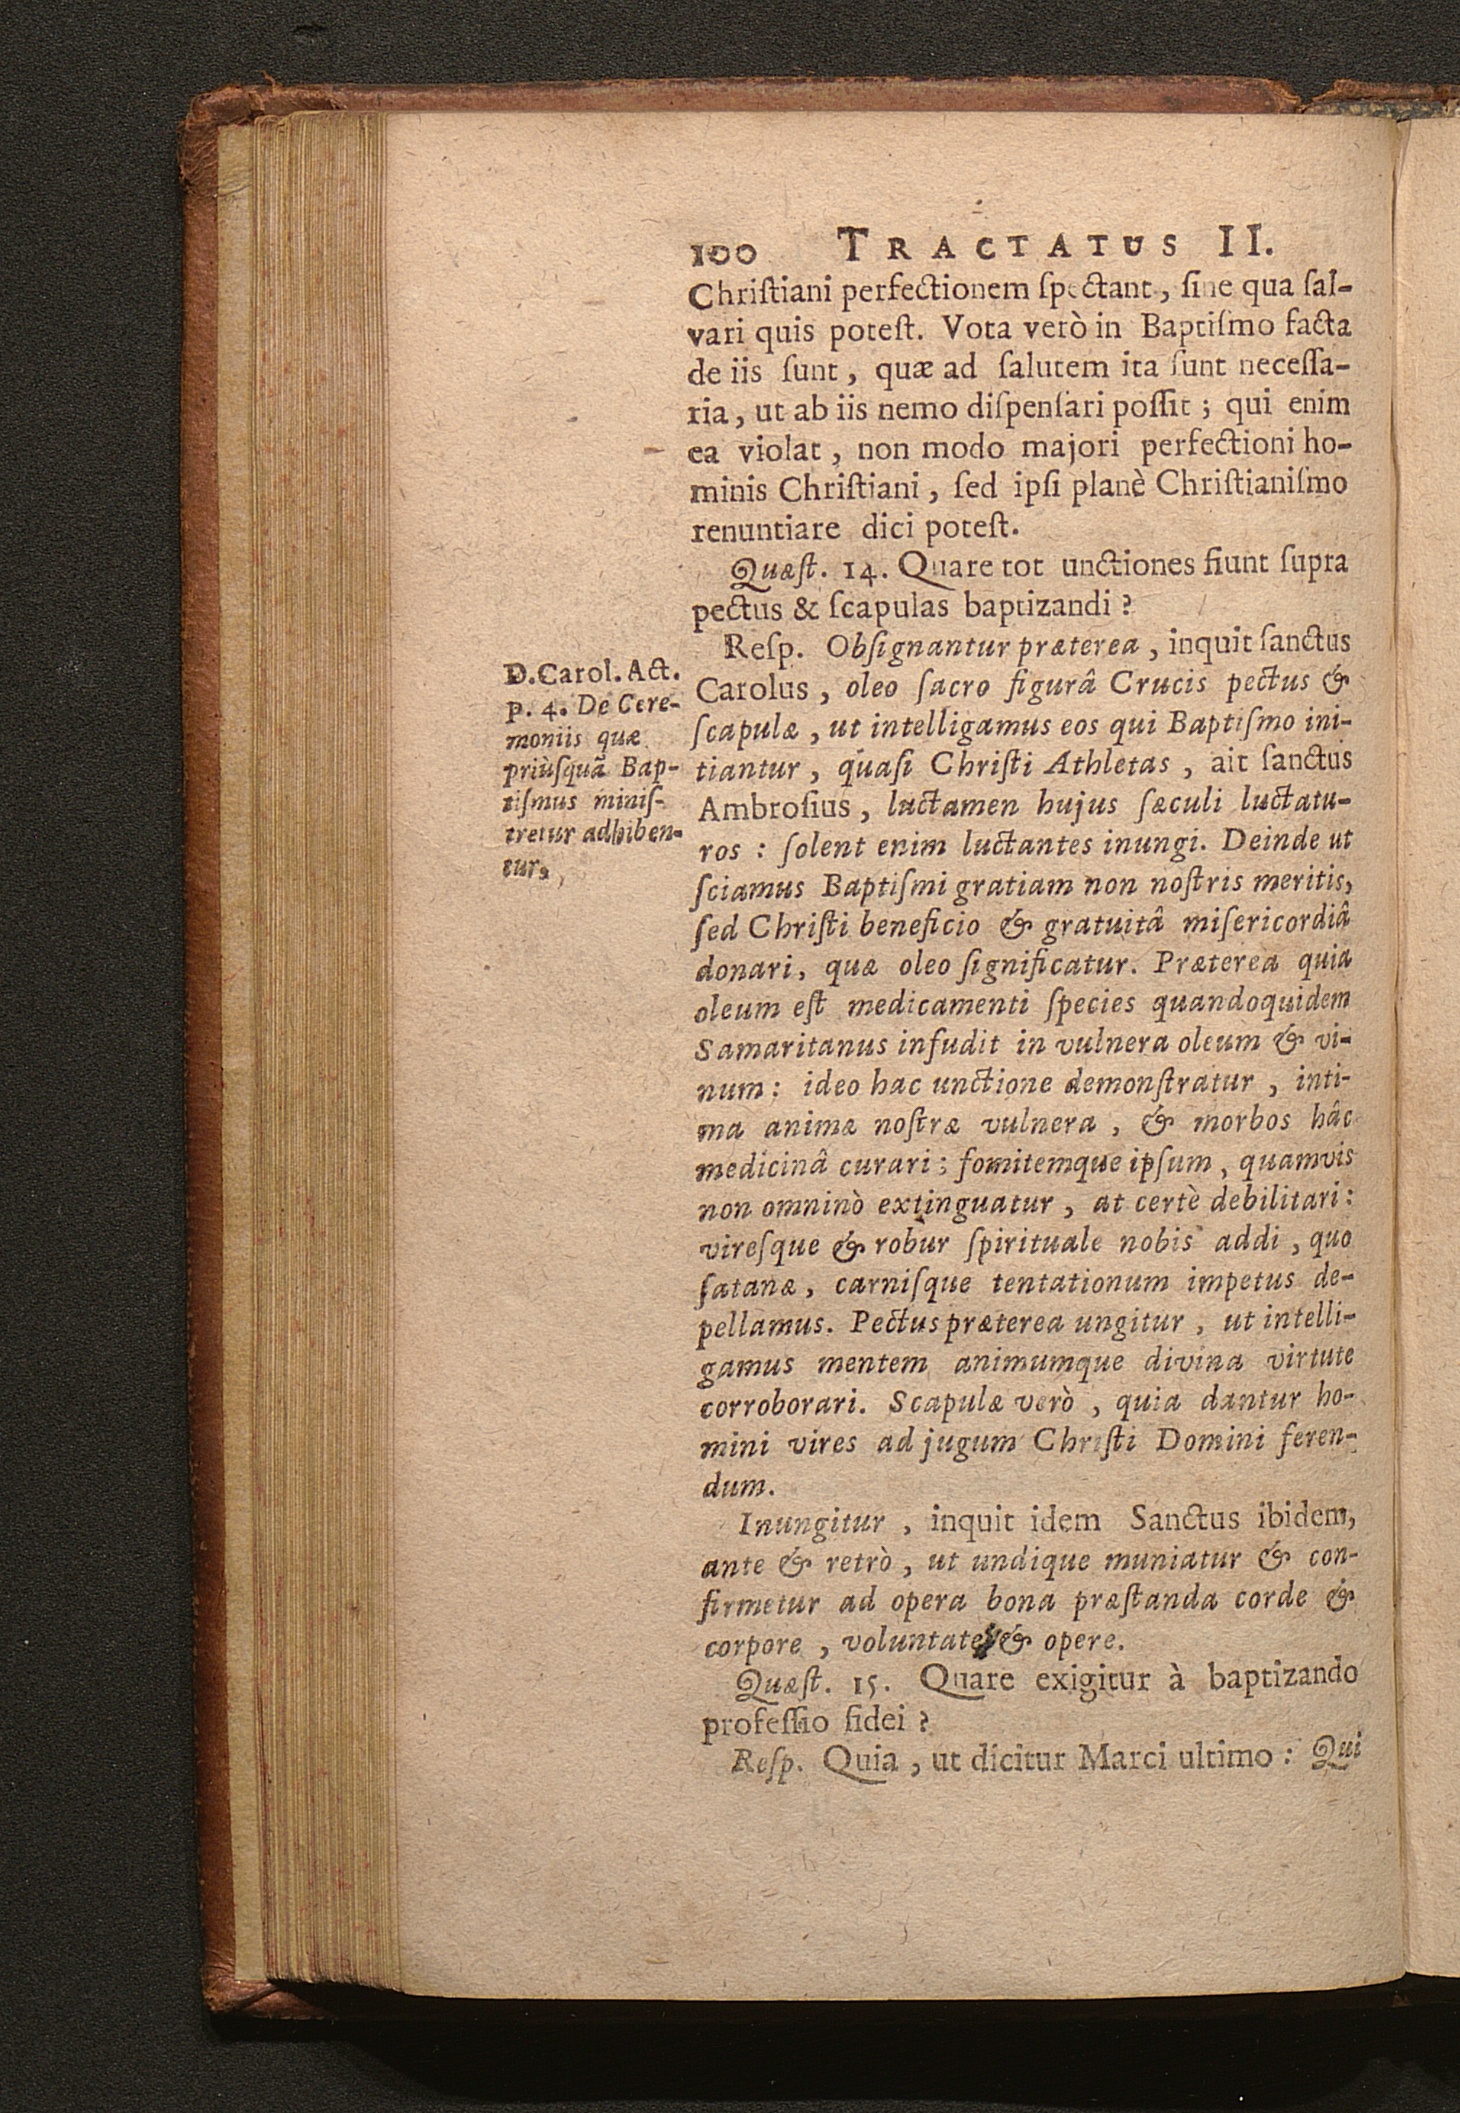 100 TRACTATUS II.
Chriſtiani perfectionem ſpectant, ſine qua ſal-
vari quis poteſt. Vota verò in Baptiſmo facta
de iis ſunt, quæ ad ſalutem ita ſunt neceſſa-
ria, ut ab iis nemo diſpenſari poſſit; qui enim
ea violat, non modo majori perfectioni ho-
minis Chriſtiani, ſed ipſi planè Chriſtianiſmo
renuntiare dici poteſt.
Quæſt. 14. Quare tot unctiones fiunt ſupra
pectus & ſcapulas baptizandi?
D. Carol. Act.
p. 4. De Cere-
moniis quæ
priùſquã Bap-
tiſmus miniſ-
tretur adhiben-
tur,
Reſp. Obſignantur præterea, inquit ſanctus
Carolus, oleo ſacro figurâ Crucis pectus &
ſcapulæ, ut intelligamus eos qui Baptiſmo ini-
tiantur, quaſi Chriſti Athletas, ait ſanctus
Ambroſius, luctamen hujus ſæculi luctatu-
ros : ſolent enim luctantes inungi. Deinde ut
ſciamus Baptiſmi gratiam non noſtris meritis,
ſed Chriſti beneficio & gratuitâ miſericordiâ
donari, quæ oleo ſignificatur. Præterea quia
oleum eſt medicamenti ſpecies quandoquidem
Samaritanus infudit in vulnera oleum & vi-
num: ideo hac unctione demonſtratur, inti-
ma animæ noſtræ vulnera, & morbos hâc
medicinâ curari; fomitemque ipſum, quamvis
non omninò extinguatur, at certè debilitari:
vireſque & robur ſpirituale nobis addi, quo
ſatanæ, carniſque tentationum impetus de-
pellamus. Pectus præterea ungitur, ut intelli-
gamus mentem animumque divina virtute
corroborari. Scapulæ verò, quia dantur ho-
mini vires ad jugum Chriſti Domini feren-
dum.
Inungitur, inquit idem Sanctus ibidem,
ante & retrò, ut undique muniatur & con-
firmetur ad opera bona præſtanda corde &
corpore, voluntate & opere.
Quæſt. 15. Quare exigitur à baptizando
profeſſio fidei?
Reſp. Quia, ut dicitur Marci ultimo: Qui